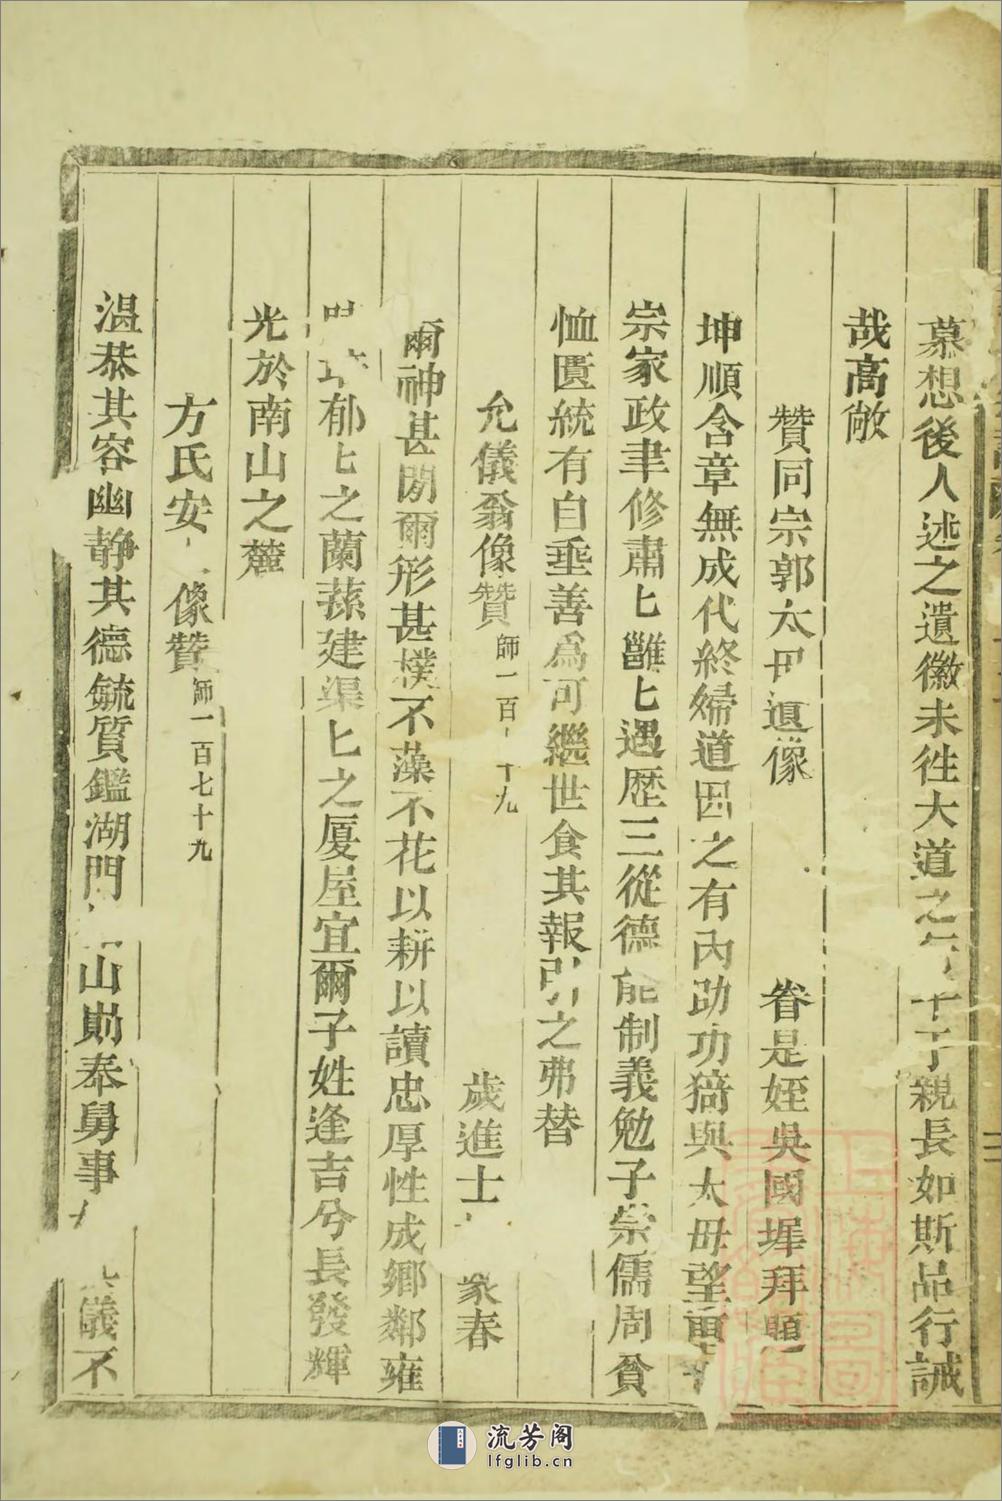 慕想後人述之遺徽未徃大道之子親長如斯品行誠
哉高敞
贊同宗郭太毌遺像 眷是姪吳國墀拜題
坤順含章無成代終婦道因之有內助功猗與太毌望重
宗家政聿修肅匕雝匕遇歴三從德能制義勉子崇儒周貧
恤匱統有自垂善爲可繼世食其報引之弗替
允儀翁像贊 師一百十九 歲進士 家春
爾神甚閒爾形甚樸不藻不花以耕以讀忠厚性成鄉鄰雍
郁匕之蘭蓀建渠匕之厦屋宜爾子姓逢吉兮長發輝
光於南山之麓
方氏安像贊 師一百七十九
温恭其容幽靜其德毓質鑑湖門山勛奉舅事儀不
流芳阁
lfglib.cn